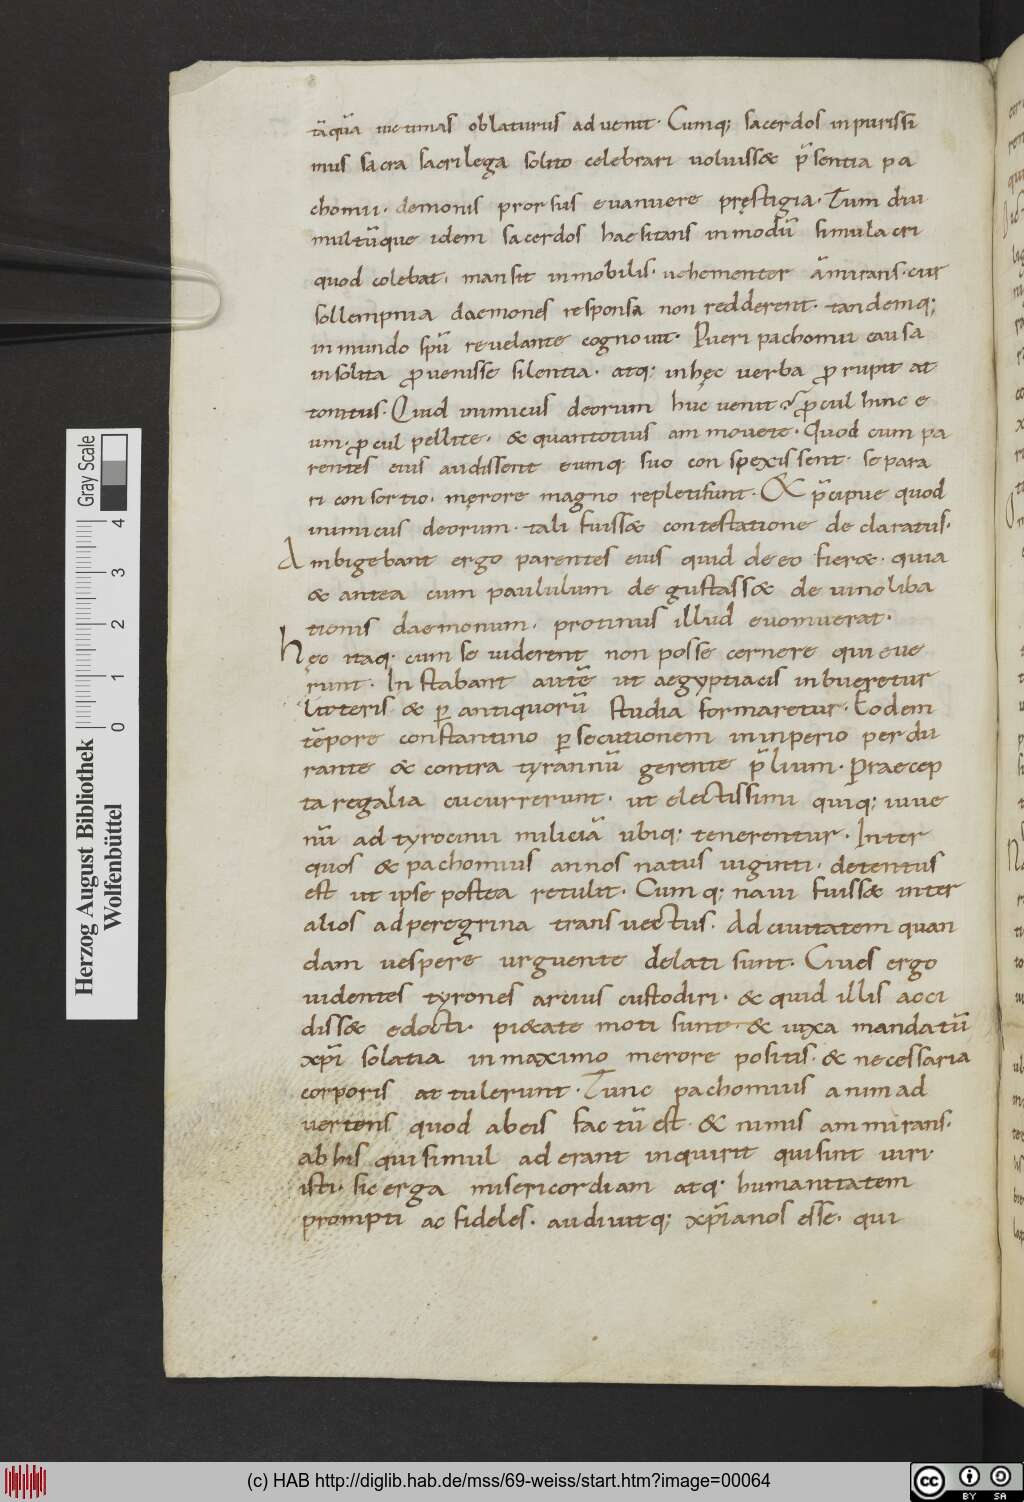 tāquā uictimas oblaturus aduenit· Cumq; sacerdos inpurissi
mus sacra sacrilega solito celebrari uoluiss& p̄sentia pa
chomii· demonis prorsus euanuere pręstigia· Tum diu
multūque idem sacerdos haesitans inmodū simulacri
quod colebat· mansit inmobilis· uehementer āmirans· cur
sollempnia daemones responsa non redderent· tandemq;
inmundo spū reuelante cognouit· Pueri pachomii causa
insolita ꝓuenisse silentia· atq; inhęc uerba ꝓrupit at
tonitus· Quid inimicus deorum huc uenit? ꝓcul hinc e
um· ꝓcul pellite· & quantotius ammouete· Quod cum pa
rentes eius audissent eumq; suo conspexissent· separa
ri consortio· męrore magno repletisunt· & p̄cipue quod
inimicus deorum· tali fuiss& contestatione declaratus·
Ambigebant ergo parentes eius quid deeo fier&· quia
& antea cum paululum degustass& de uinoliba
tionis daemonum· protinus illud euomuerat·
hęc itaq; cum se uiderent non posse cernere quieue
runt· Instabant autē ut aegyptiacis inbueretur
litteris & ꝑ antiquorū studia formaretur· Eodem
tēpore constantino ꝑsecutionem ininperio perdu
rante & contra tyrannū gerente p̄lium· Praecep
ta regalia cucurrerunt· ut electissimi quiq; iuue
nū ad tyrocinii miliciā ubiq; tenerentur· Inter
quos & pachomius annos natus uiginti· detentus
est ut ipse postea retulit· Cumq; naui fuiss& inter
alios adperegrina transuectus· Ad ciuitatem quan
dam uespere urguente delati sunt· Ciues ergo
uidentes tyrones arcius custodiri· & quid illis acci
diss& edocti· pi&ate moti sunt· & iuxa mandatū
xp̄i solatia inmaximo merore positis· & necessaria
corporis attulerunt· Tunc pachomius animad
uertens quod abeis factū est & nimis ammirans·
abhis quisimul aderant inquirit quisint uiri·
isti· sic erga misericordiam atq; humanitatem
prompti ac fideles· audiuitq; xp̄ianos esse· qui
Gray Scale
0 1 2 3 4
Herzog August Bibliothek
Wolfenbüttel
(c) HAB http://diglib.hab.de/mss/69-weiss/start.htm?image=00064
cc BY SA